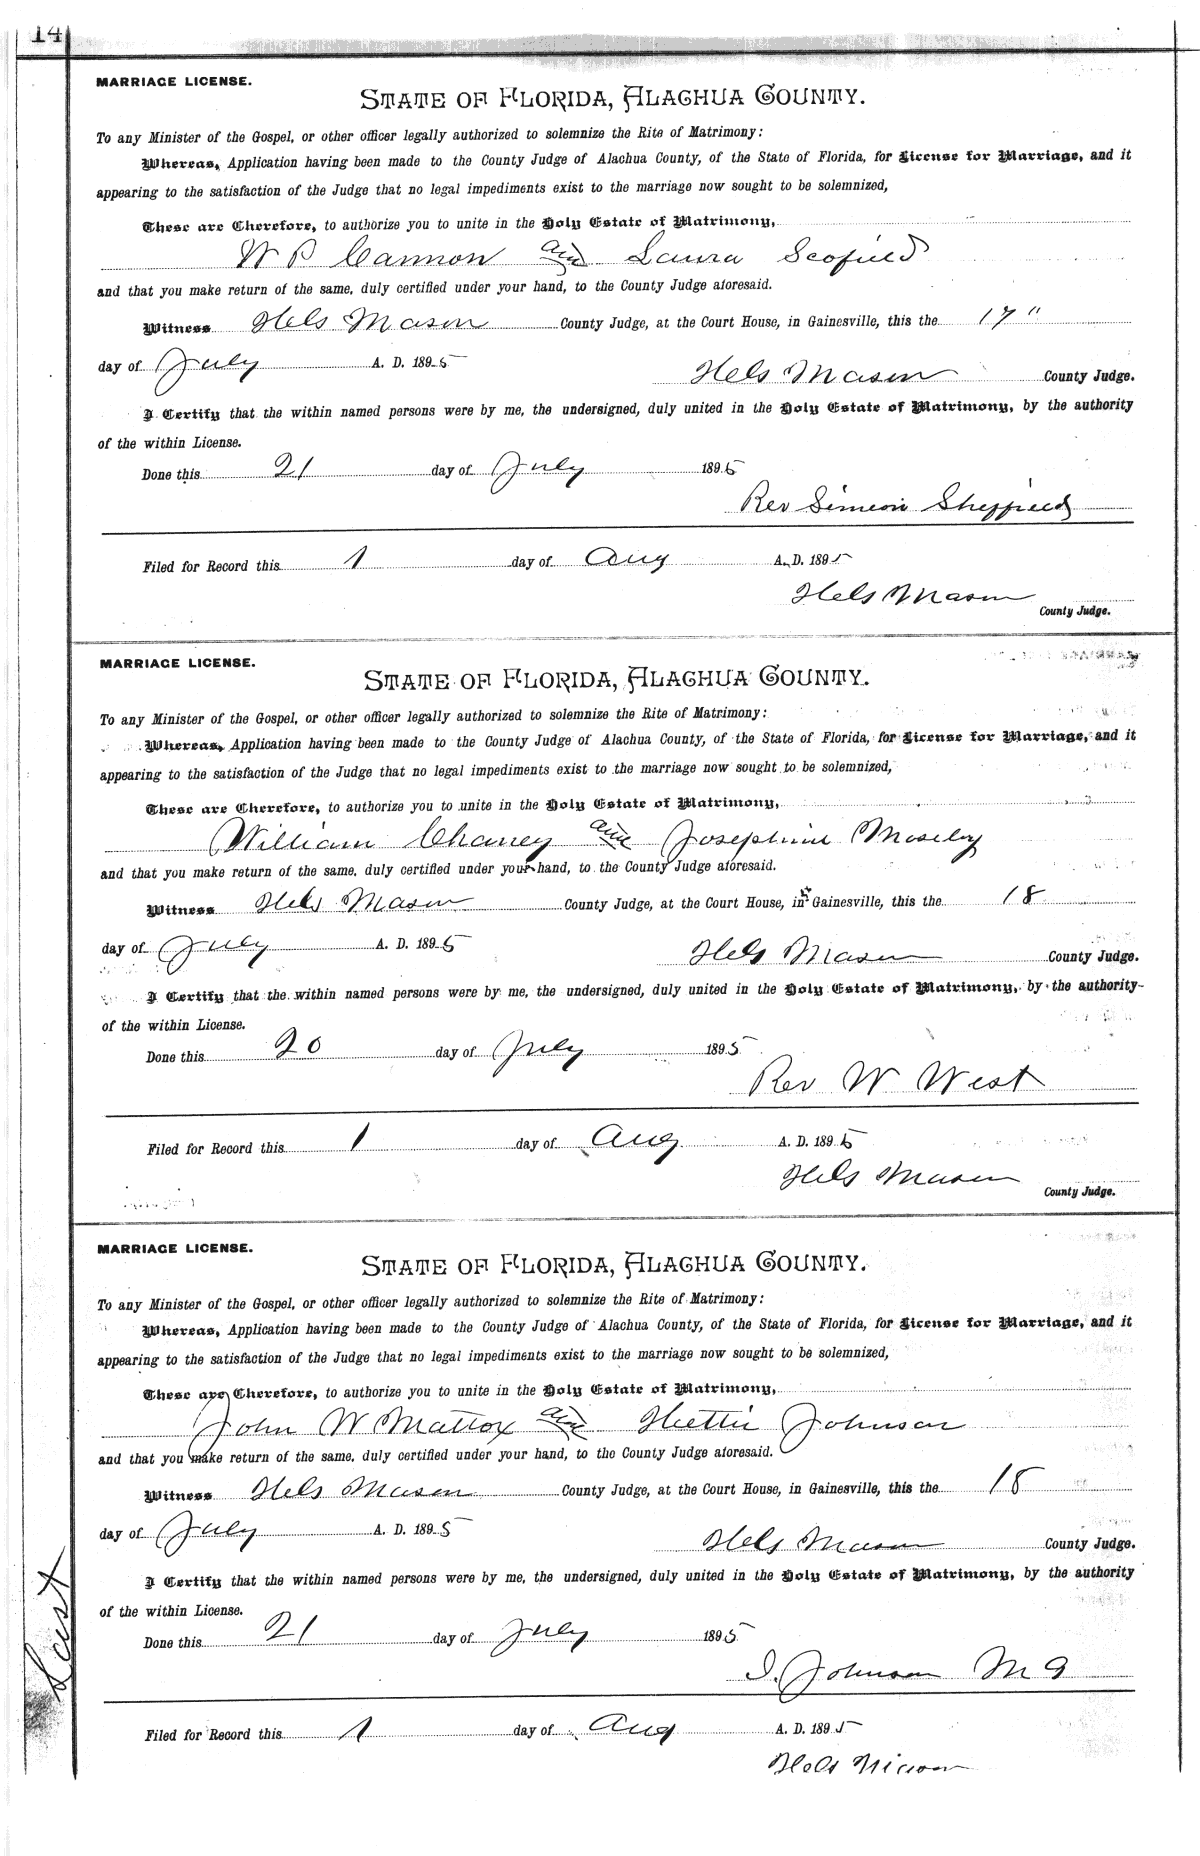 14
MARRIAGE LICENSE.
STATE OF FLORIDA, ALACHUA COUNTY.
To any Minister of the Gospel, or other officer legally authorized to solemnize the Rite of Matrimony:
Whereas, Application having been made to the County Judge of Alachua County, of the State of Florida, for License for Marriage, and it
appearing to the satisfaction of the Judge that no legal impediments exist to the marriage now sought to be solemnized,
These are Therefore, to authorize you to unite in the Holy Estate of Matrimony,
W P Cannon and Laura Scofield
and that you make return of the same, duly certified under your hand, to the County Judge aforesaid.
Witness Hels Mason County Judge, at the Court House, in Gainesville, this the 17"
day of July A. D. 1895
Hels Mason County Judge.
I Certify that the within named persons were by me, the undersigned, duly united in the Holy Estate of Matrimony, by the authority
of the within License.
Done this 21 day of July 1895
Rev Simeon Sheffield
Filed for Record this 1 day of Aug A. D. 1895
Hels Mason
County Judge.
MARRIAGE LICENSE.
STATE OF FLORIDA, ALACHUA COUNTY.
To any Minister of the Gospel, or other officer legally authorized to solemnize the Rite of Matrimony:
Whereas, Application having been made to the County Judge of Alachua County, of the State of Florida, for License for Marriage, and it
appearing to the satisfaction of the Judge that no legal impediments exist to the marriage now sought to be solemnized,
These are Therefore, to authorize you to unite in the Holy Estate of Matrimony,
William Chaney and Josephine Moseley
and that you make return of the same, duly certified under your hand, to the County Judge aforesaid.
Witness Hels Mason County Judge, at the Court House, in Gainesville, this the 18
day of July A. D. 1895
Hels Mason County Judge.
I Certify that the within named persons were by me, the undersigned, duly united in the Holy Estate of Matrimony, by the authority
of the within License.
Done this 20 day of July 1895
Rev W West
Filed for Record this 1 day of Aug A. D. 1895
Hels Mason
County Judge.
MARRIAGE LICENSE.
STATE OF FLORIDA, ALACHUA COUNTY.
To any Minister of the Gospel, or other officer legally authorized to solemnize the Rite of Matrimony:
Whereas, Application having been made to the County Judge of Alachua County, of the State of Florida, for License for Marriage, and it
appearing to the satisfaction of the Judge that no legal impediments exist to the marriage now sought to be solemnized,
These are Therefore, to authorize you to unite in the Holy Estate of Matrimony,
John W Mattox and Hettie Johnson
and that you make return of the same, duly certified under your hand, to the County Judge aforesaid.
Witness Hels Mason County Judge, at the Court House, in Gainesville, this the 18
day of July A. D. 1895
Hels Mason County Judge.
I Certify that the within named persons were by me, the undersigned, duly united in the Holy Estate of Matrimony, by the authority
of the within License.
Done this 21 day of July 1895
I. Johnson M G
Filed for Record this 1 day of Aug A. D. 1895
Hels Mason
Last